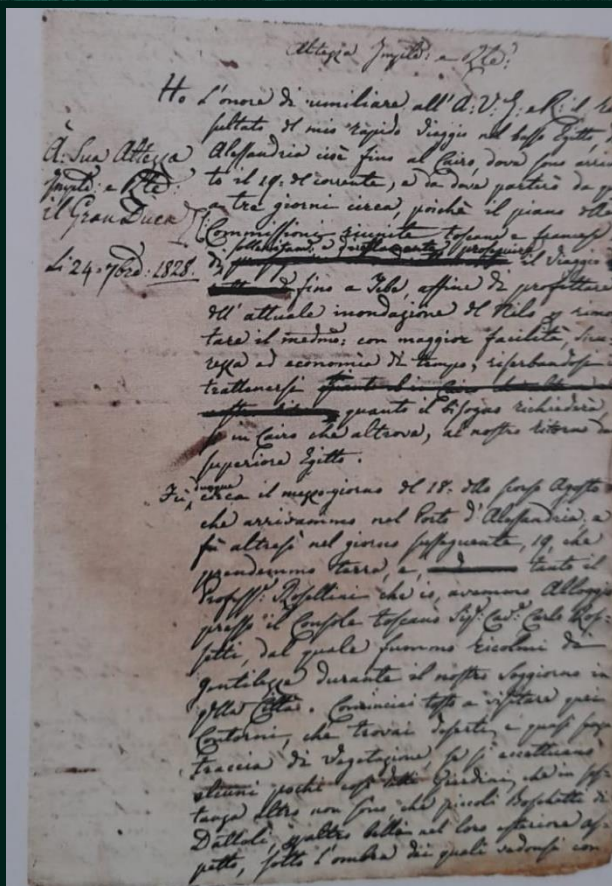 Altezza Imple: e Rle:
Ho l'onore di umiliare all'A: V: I: e R: il
sultato del mio rapido viaggio nel basso Egitto,
A: Sua Altezza
Imple: e Rle:
il Gran Duca
li 24 7bre: 1828.
Alessandria cioè fino al Cairo, dove sono arriva
to il 19: del corrente, e da dove partirò da
a tre giorni circa, poichè il piano delle
Commissioni riunite toscana e francese
di proseguire il viaggio
fino a Tebe, affine di profittare
dell'attuale inondazione del Nilo p rimon
tare il medmo: con maggior facilità, sicu
rezza ed economia di tempo; riserbandosi
trattenersi
quanto il bisogno richiederà
sì in Cairo che altrove, al nostro ritorno da
superiore Egitto.
Fù dunque circa il mezzogiorno del 18: dello scorso Agosto
che arrivammo nel Porto d'Alessandria, e
fù altresì nel giorno susseguente, 19, che
prendemmo terra, e, tanto il
Profess: Rosellini che io, avemmo Alloggio
presso il Console toscano Sigr: Cavr: Carlo Ros-
setti, dal quale fummo ricolmi di
gentilezze durante il nostro soggiorno in
qlla Città. Cominciai tosto a visitare quei
Contorni, che trovai deserti, e quasi
traccia di vegetazione, se si eccettuano
alcuni pochi così detti Giardini, che in sos
tanza altro non sono che piccoli Boschetti di
Dattoli, nel loro esteriore as-
petto, sotto l'ombra dei quali vedonsi con